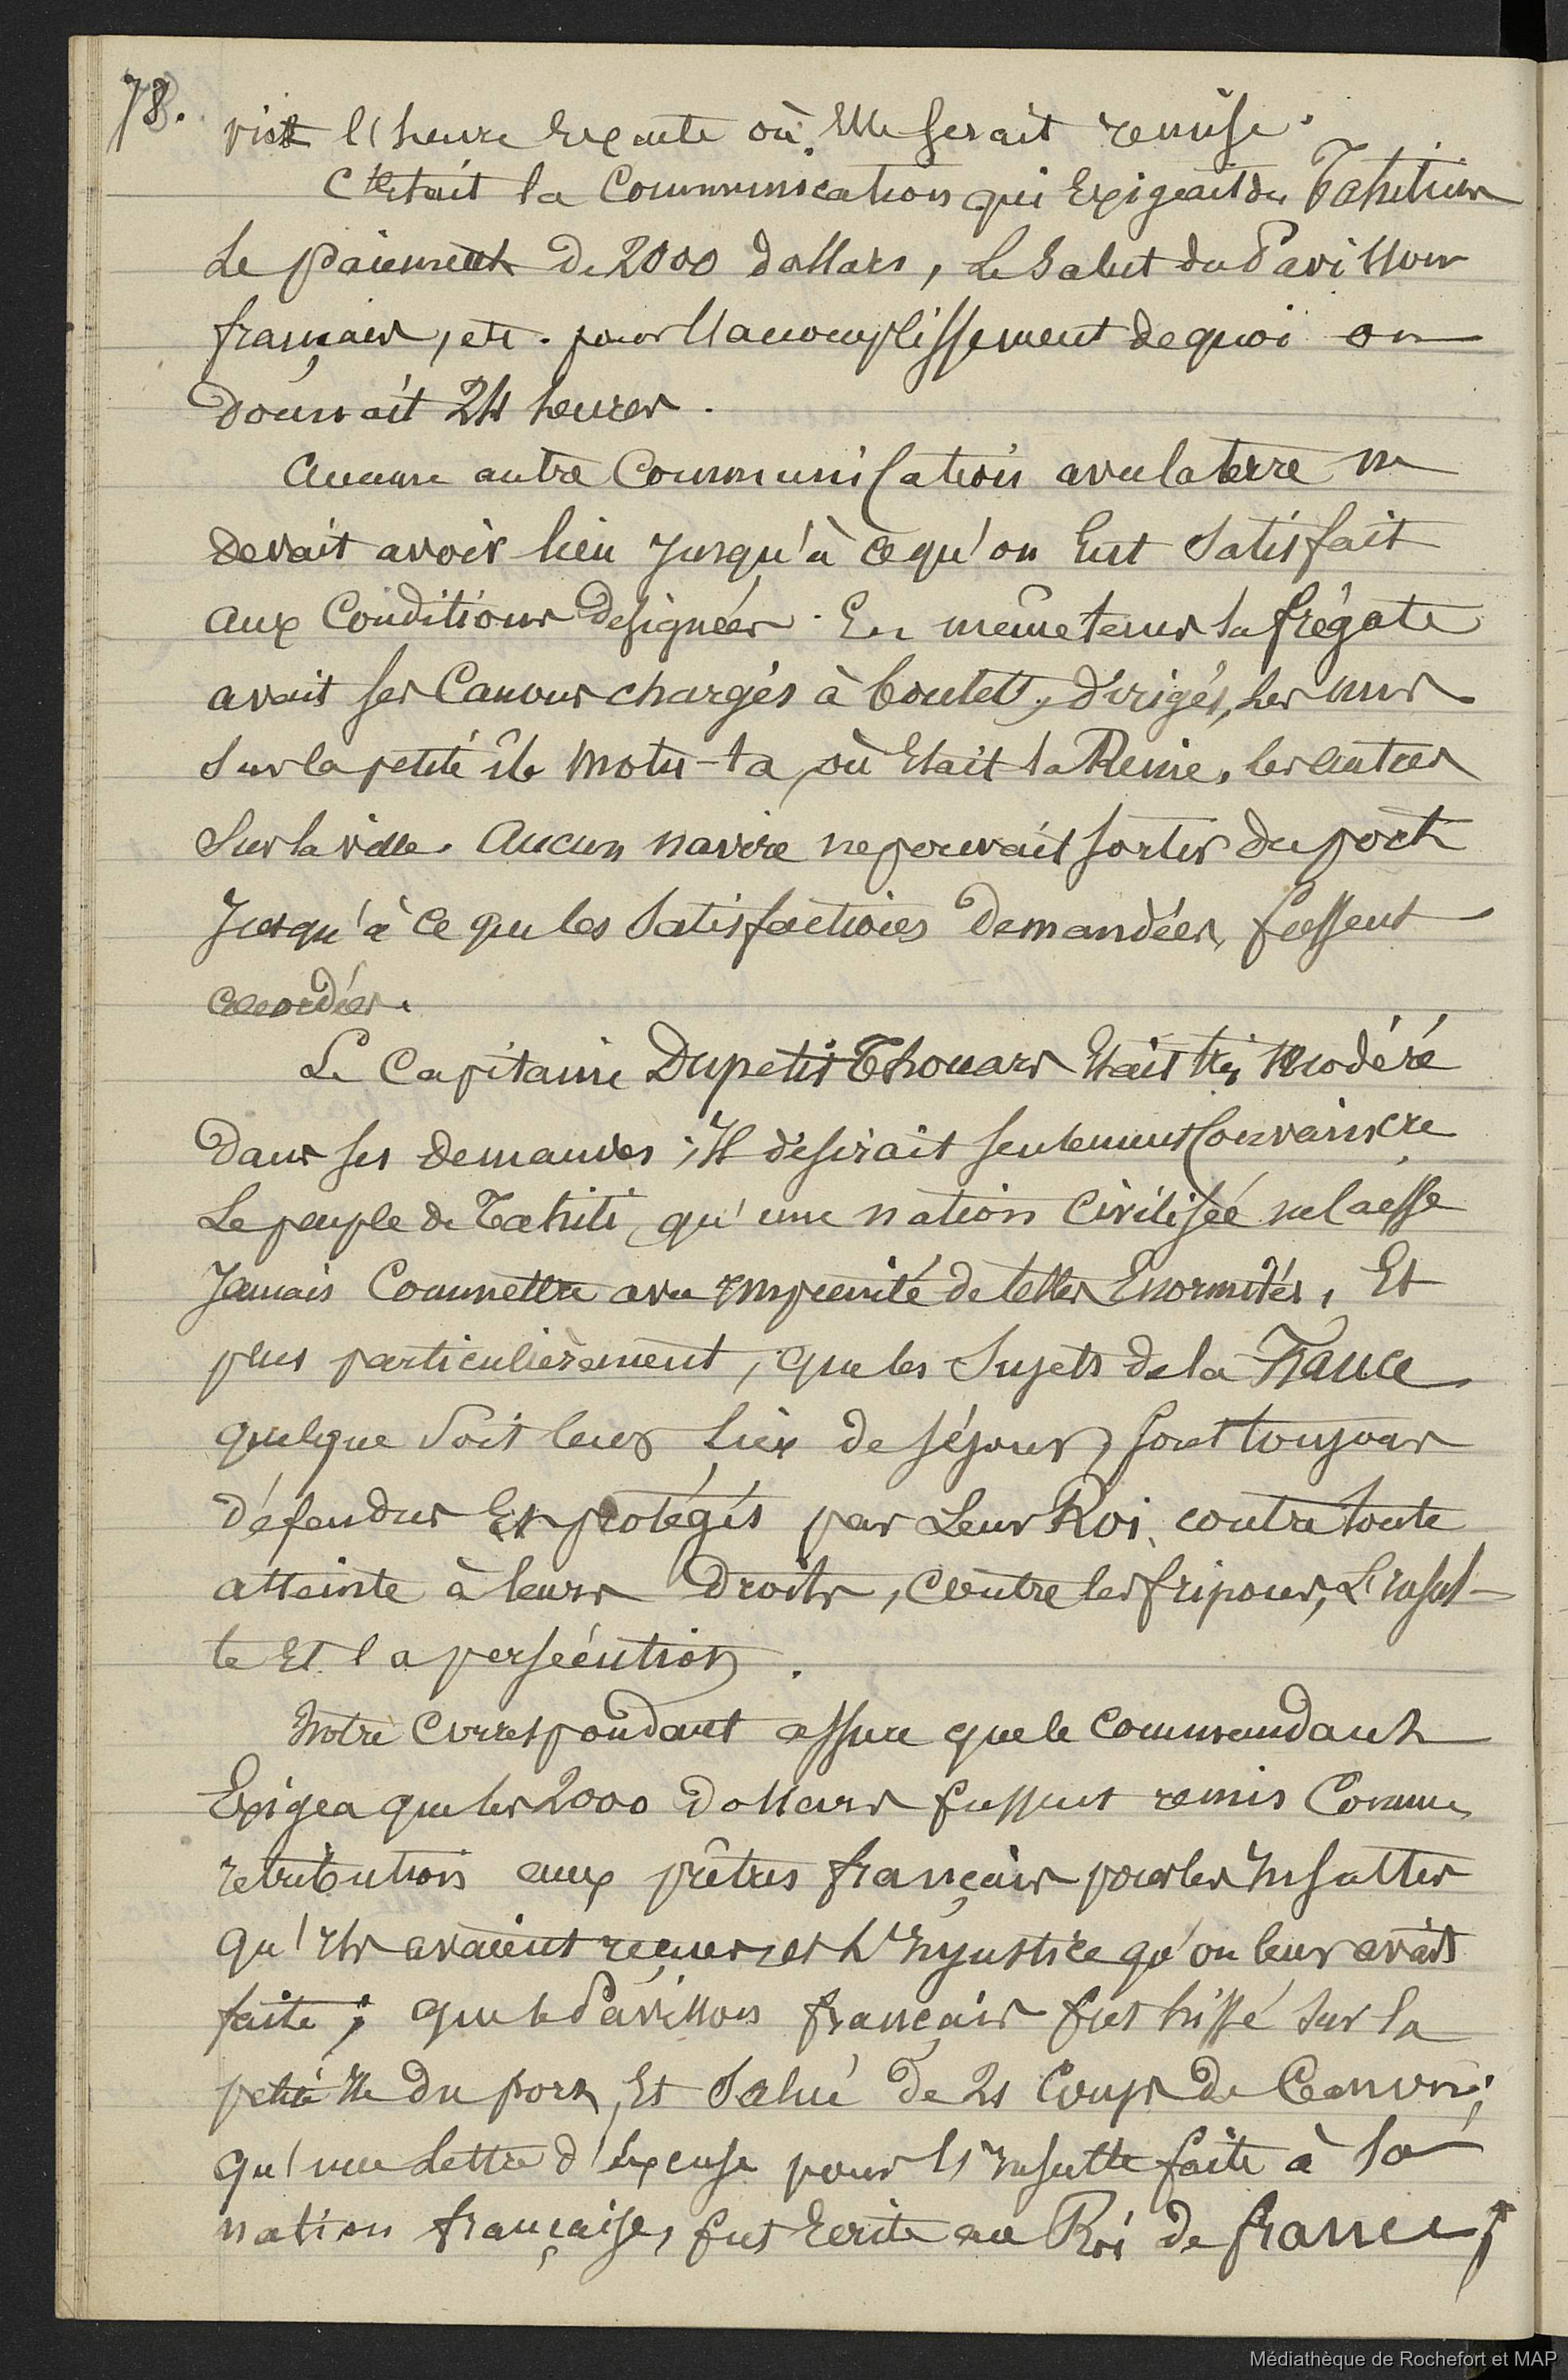 78.
vit l'heure Exacte où Elle serait remise.
C'était la Communication qui Exigeait des Tahitiens
Le paiement De 2000 dollars, Le Salut du Pavillon
français, etc. pour l'accomplissement de quoi on
Donnait 24 heures.
Aucune autre Communication avec la terre ne
devait avoir lieu jusqu'à ce qu'on Eut Satisfait
aux Conditions Designées. En même tems la frégate
avait ses Canons chargés à boulets, dirigés, les uns
Sur la petite île Motu-ta, où Etait la Reine, les autres
Sur la ville. Aucun navire ne pouvait sortir du port
Jusqu'à ce que les Satisfactions Demandées, fussent
accordées.
Le Capitaine Dupetit Thouars Etait très Modéré
Dans ses demandes ; Il désirait seulement Convaincre
Le peuple de Tahiti, qu'une nation Civilisée ne laisse
Jamais Commettre avec impunité de telles Enormités, Et
plus particulièrement, que les Sujets de la France
quelque Soit leur lieu de séjour, sont toujours
défendus Et protégés par Leur Roi, contre toute
atteinte à leurs Droits, Contre les fripons, L'insul-
te Et la persécution.
Notre Correspondant assure que le Commandant
Exigea que les 2000 Dollars fussent remis Comme
retribution aux prêtres français pour les Insultes
qu'Ils avaient reçues, et L'Injustice qu'on leur avait
faite ; que le Pavillon français fut hissé Sur la
petite Ile du port, Et Salué de 21 Coups de Canon ;
qu'une Lettre d'Excuse pour l'Insulte faite à la
nation française, fut Ecrite au Roi de france ;
Médiathèque de Rochefort et MAP